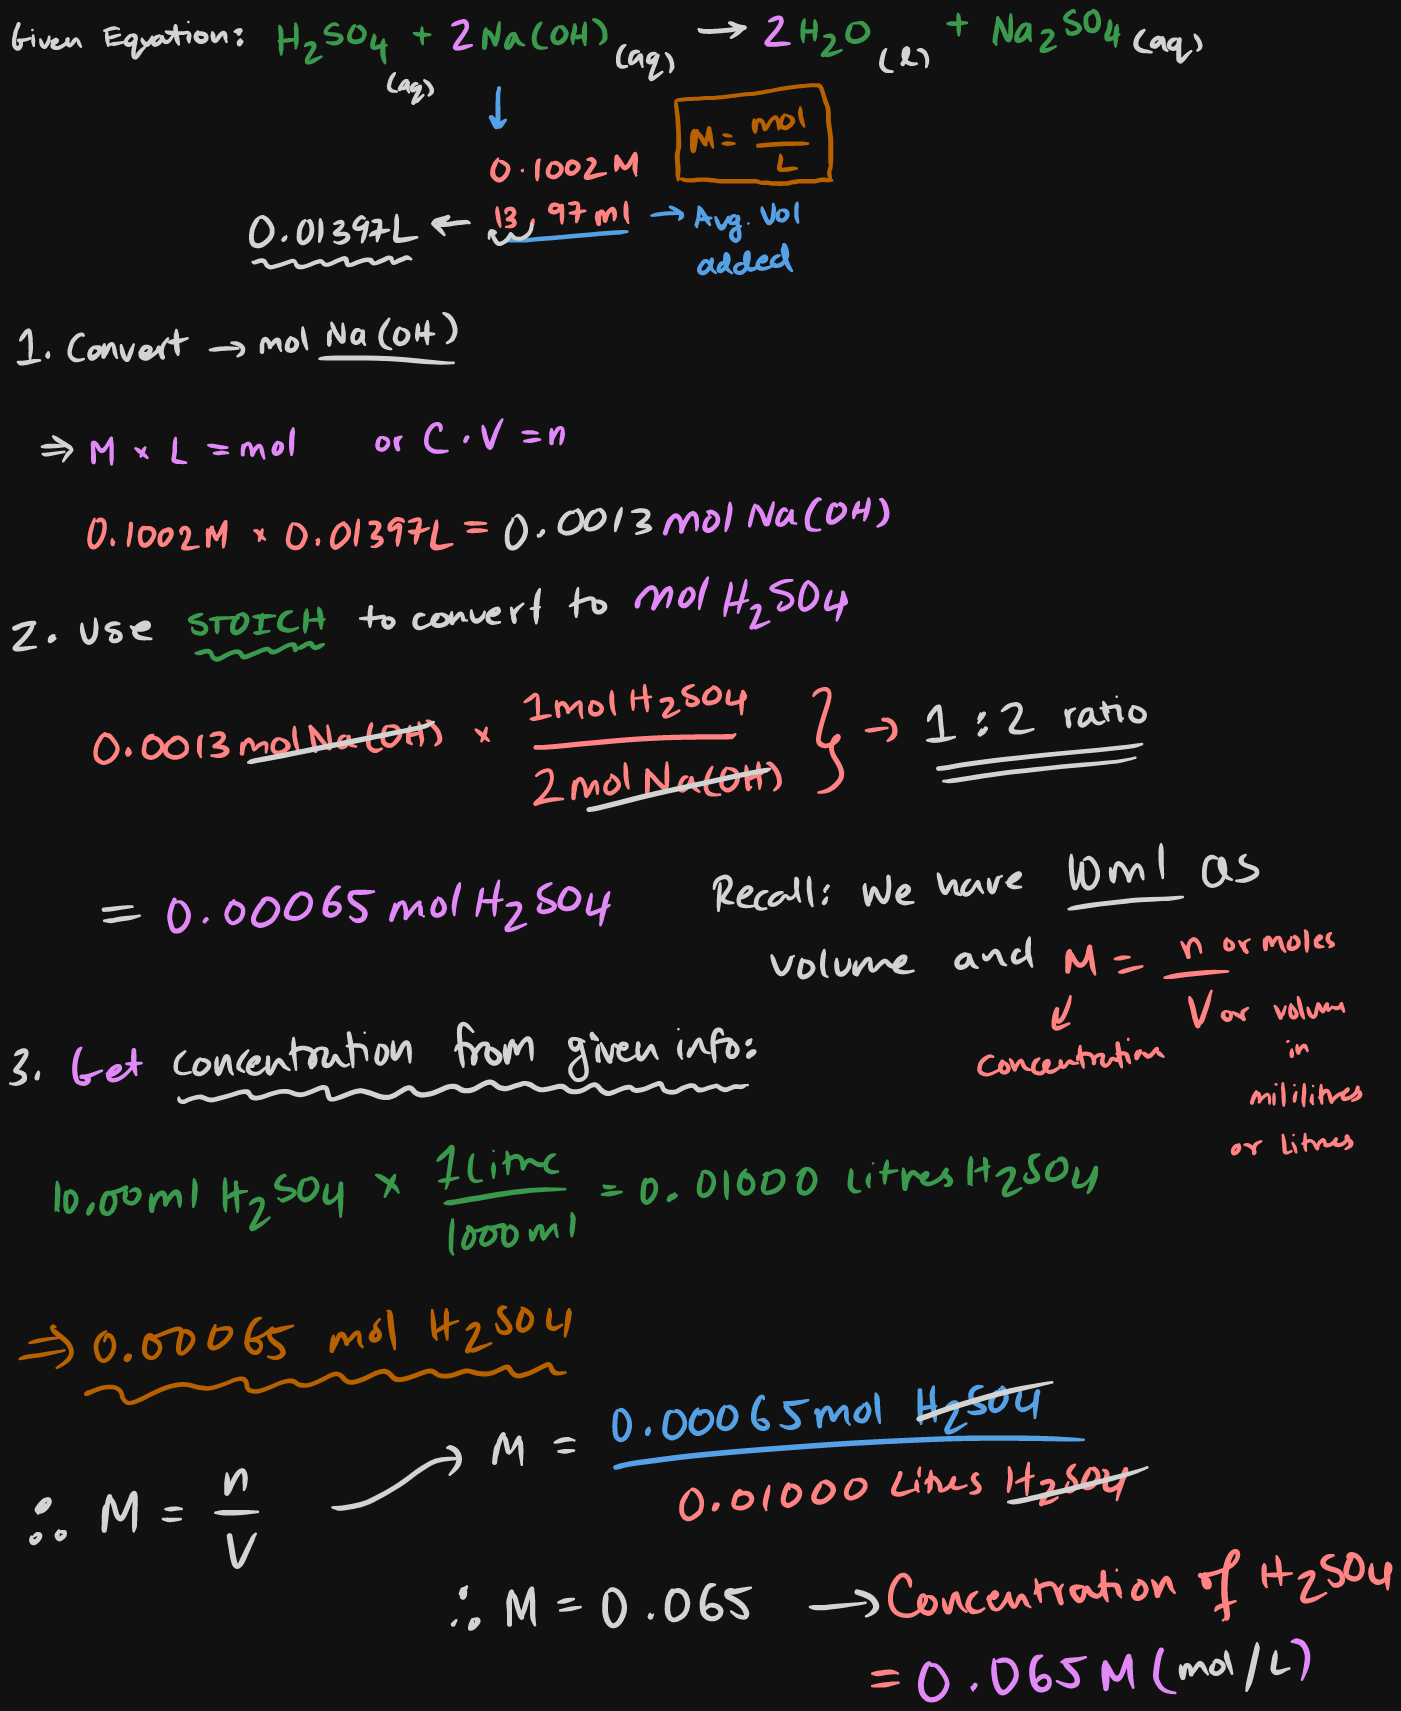 Given Equation: H2SO4 (aq) + 2Na(OH) (aq) → 2H2O (l) + Na2SO4 (aq)
↓
0.1002M
M = mol/L
0.01397L ← 13,97ml → Avg. Vol
added
1. Convert → mol Na(OH)
⇒ M × L = mol or C · V = n
0.1002M × 0.01397L = 0.0013 mol Na(OH)
2. Use STOICH to convert to mol H2SO4
0.0013 mol Na(OH) × 1 mol H2SO4 / 2 mol Na(OH) } → 1:2 ratio
= 0.00065 mol H2SO4
Recall: We have 10ml as
volume and M = n or moles / V or volum
↓
Concentration
in
mililitres
or litres
3. Get concentration from given info:
10.00ml H2SO4 × 1 Litre / 1000ml = 0.01000 Litres H2SO4
⇒ 0.00065 mol H2SO4
∴ M = n/V → M = 0.00065 mol H2SO4 / 0.01000 Litres H2SO4
∴ M = 0.065 → Concentration of H2SO4
= 0.065 M (mol/L)